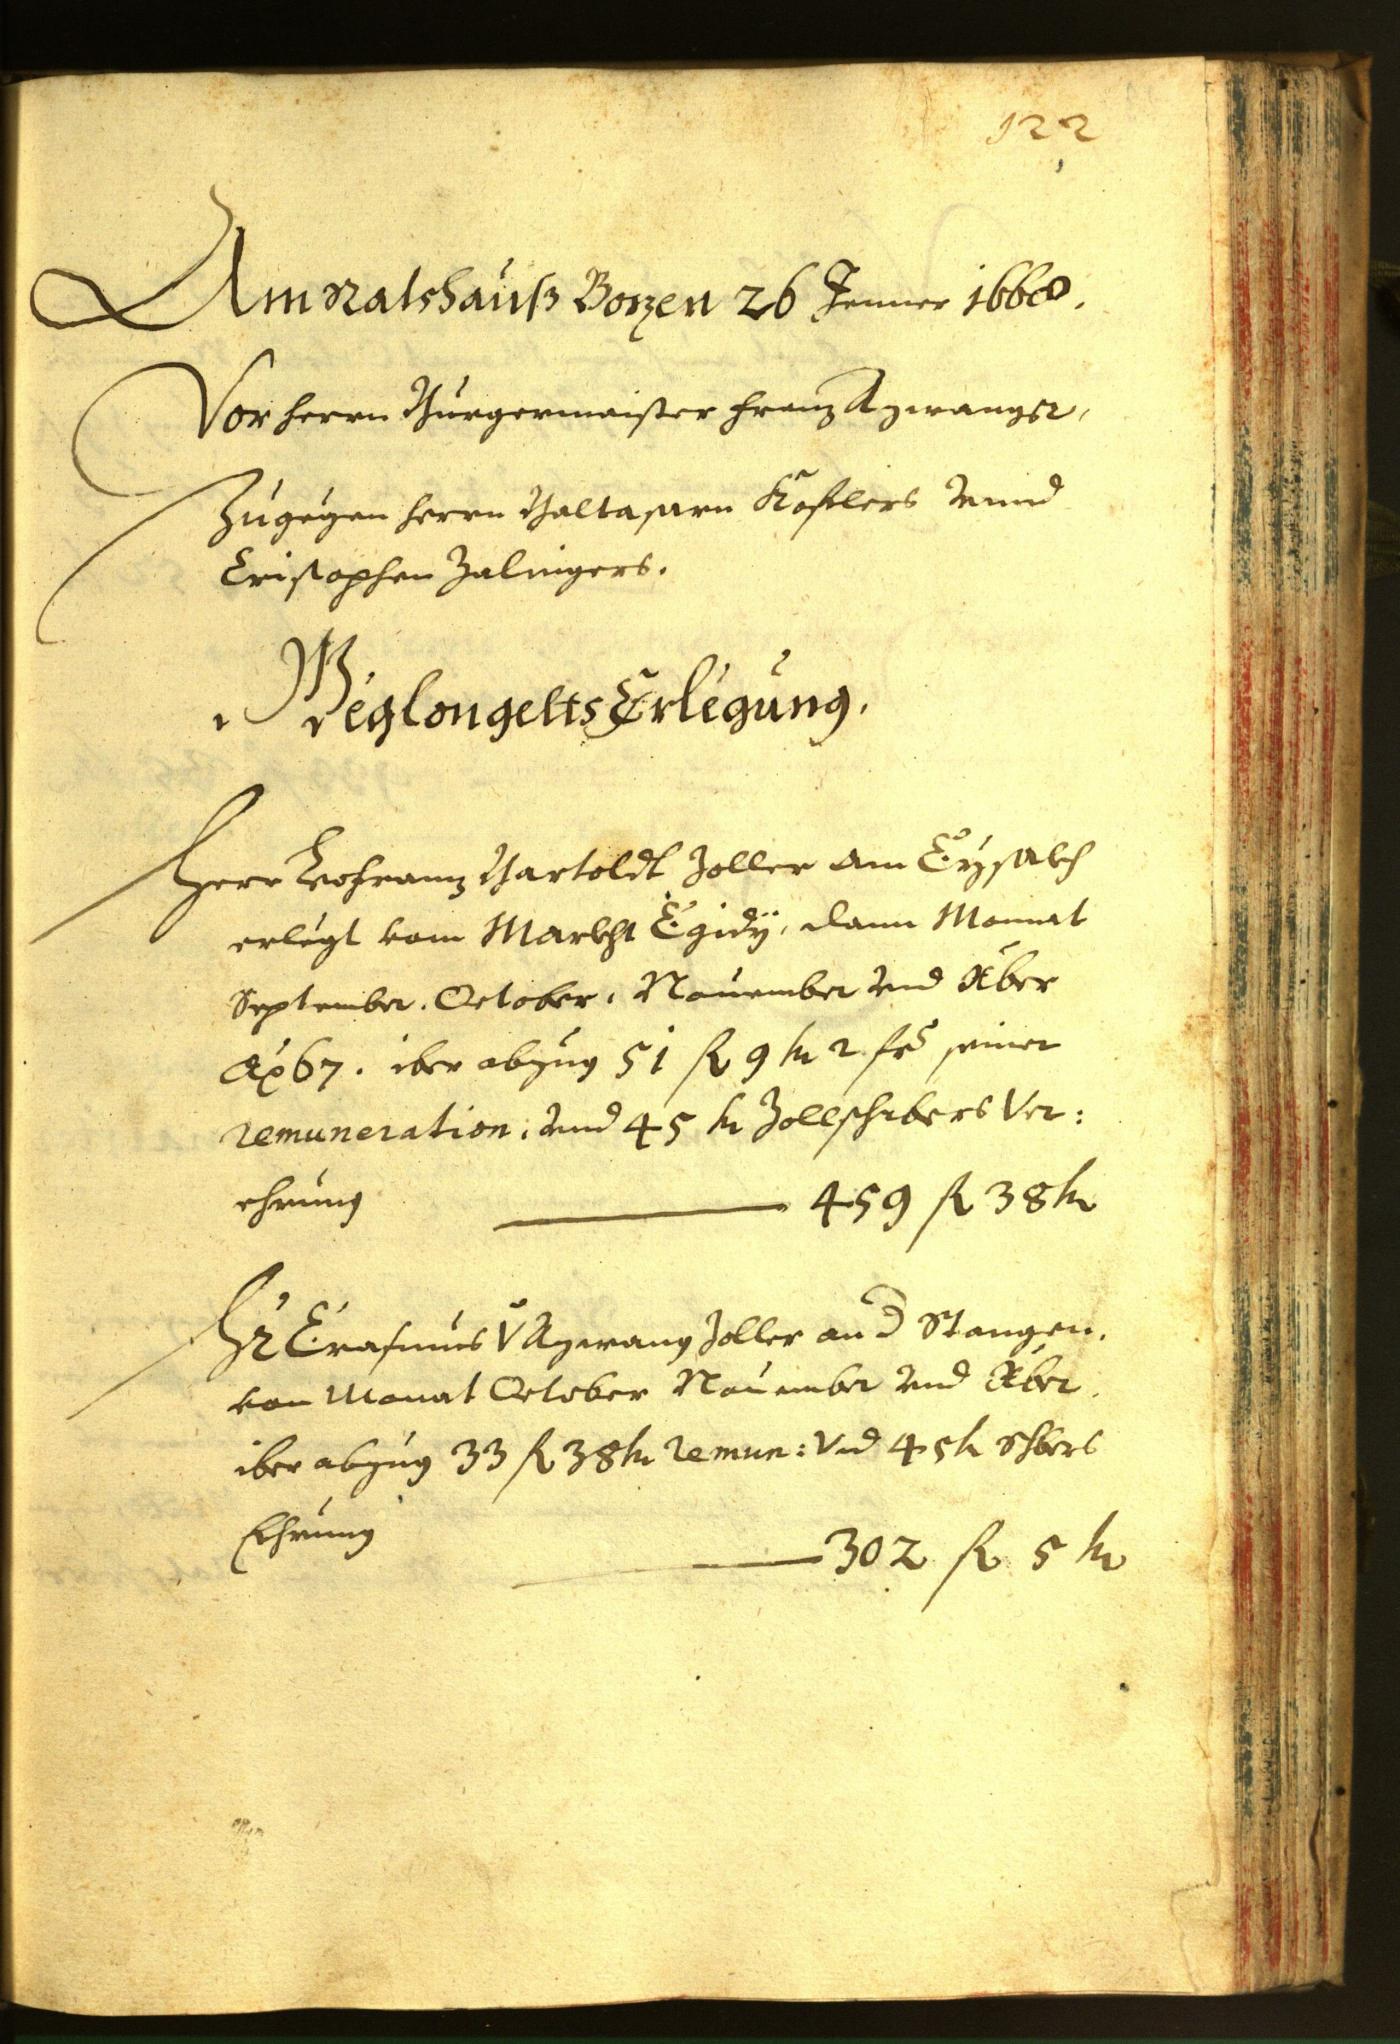 122
Am Ratshauß Bozen 26 Jenner 1668.
Vor herrn Burgermaister Franz Azwanger,
Zugegen herrn Baltasarn Koflers vnnd
Cristophen Zalingers.
Weglongelts Erlegung.
Herr Bartoldt Zoller am Eysakh
erlegt vom Markht Egidy, dann Monnat
September. October, Nouember vnd Xber
Ao 67. iber abzug 51 fl 9 kr 2 fr seiner
remuneration, vnnd 45 kr Zollschribers Ver:
ehrung 459 fl 38 kr
Hr Erasmus V Azwang Zoller an d Stangen.
von Monat October Nouember vnd Xber
iber abzug 33 fl 38 kr remun: Vnd 45 k Schbers
Ehrung 302 fl 5 kr